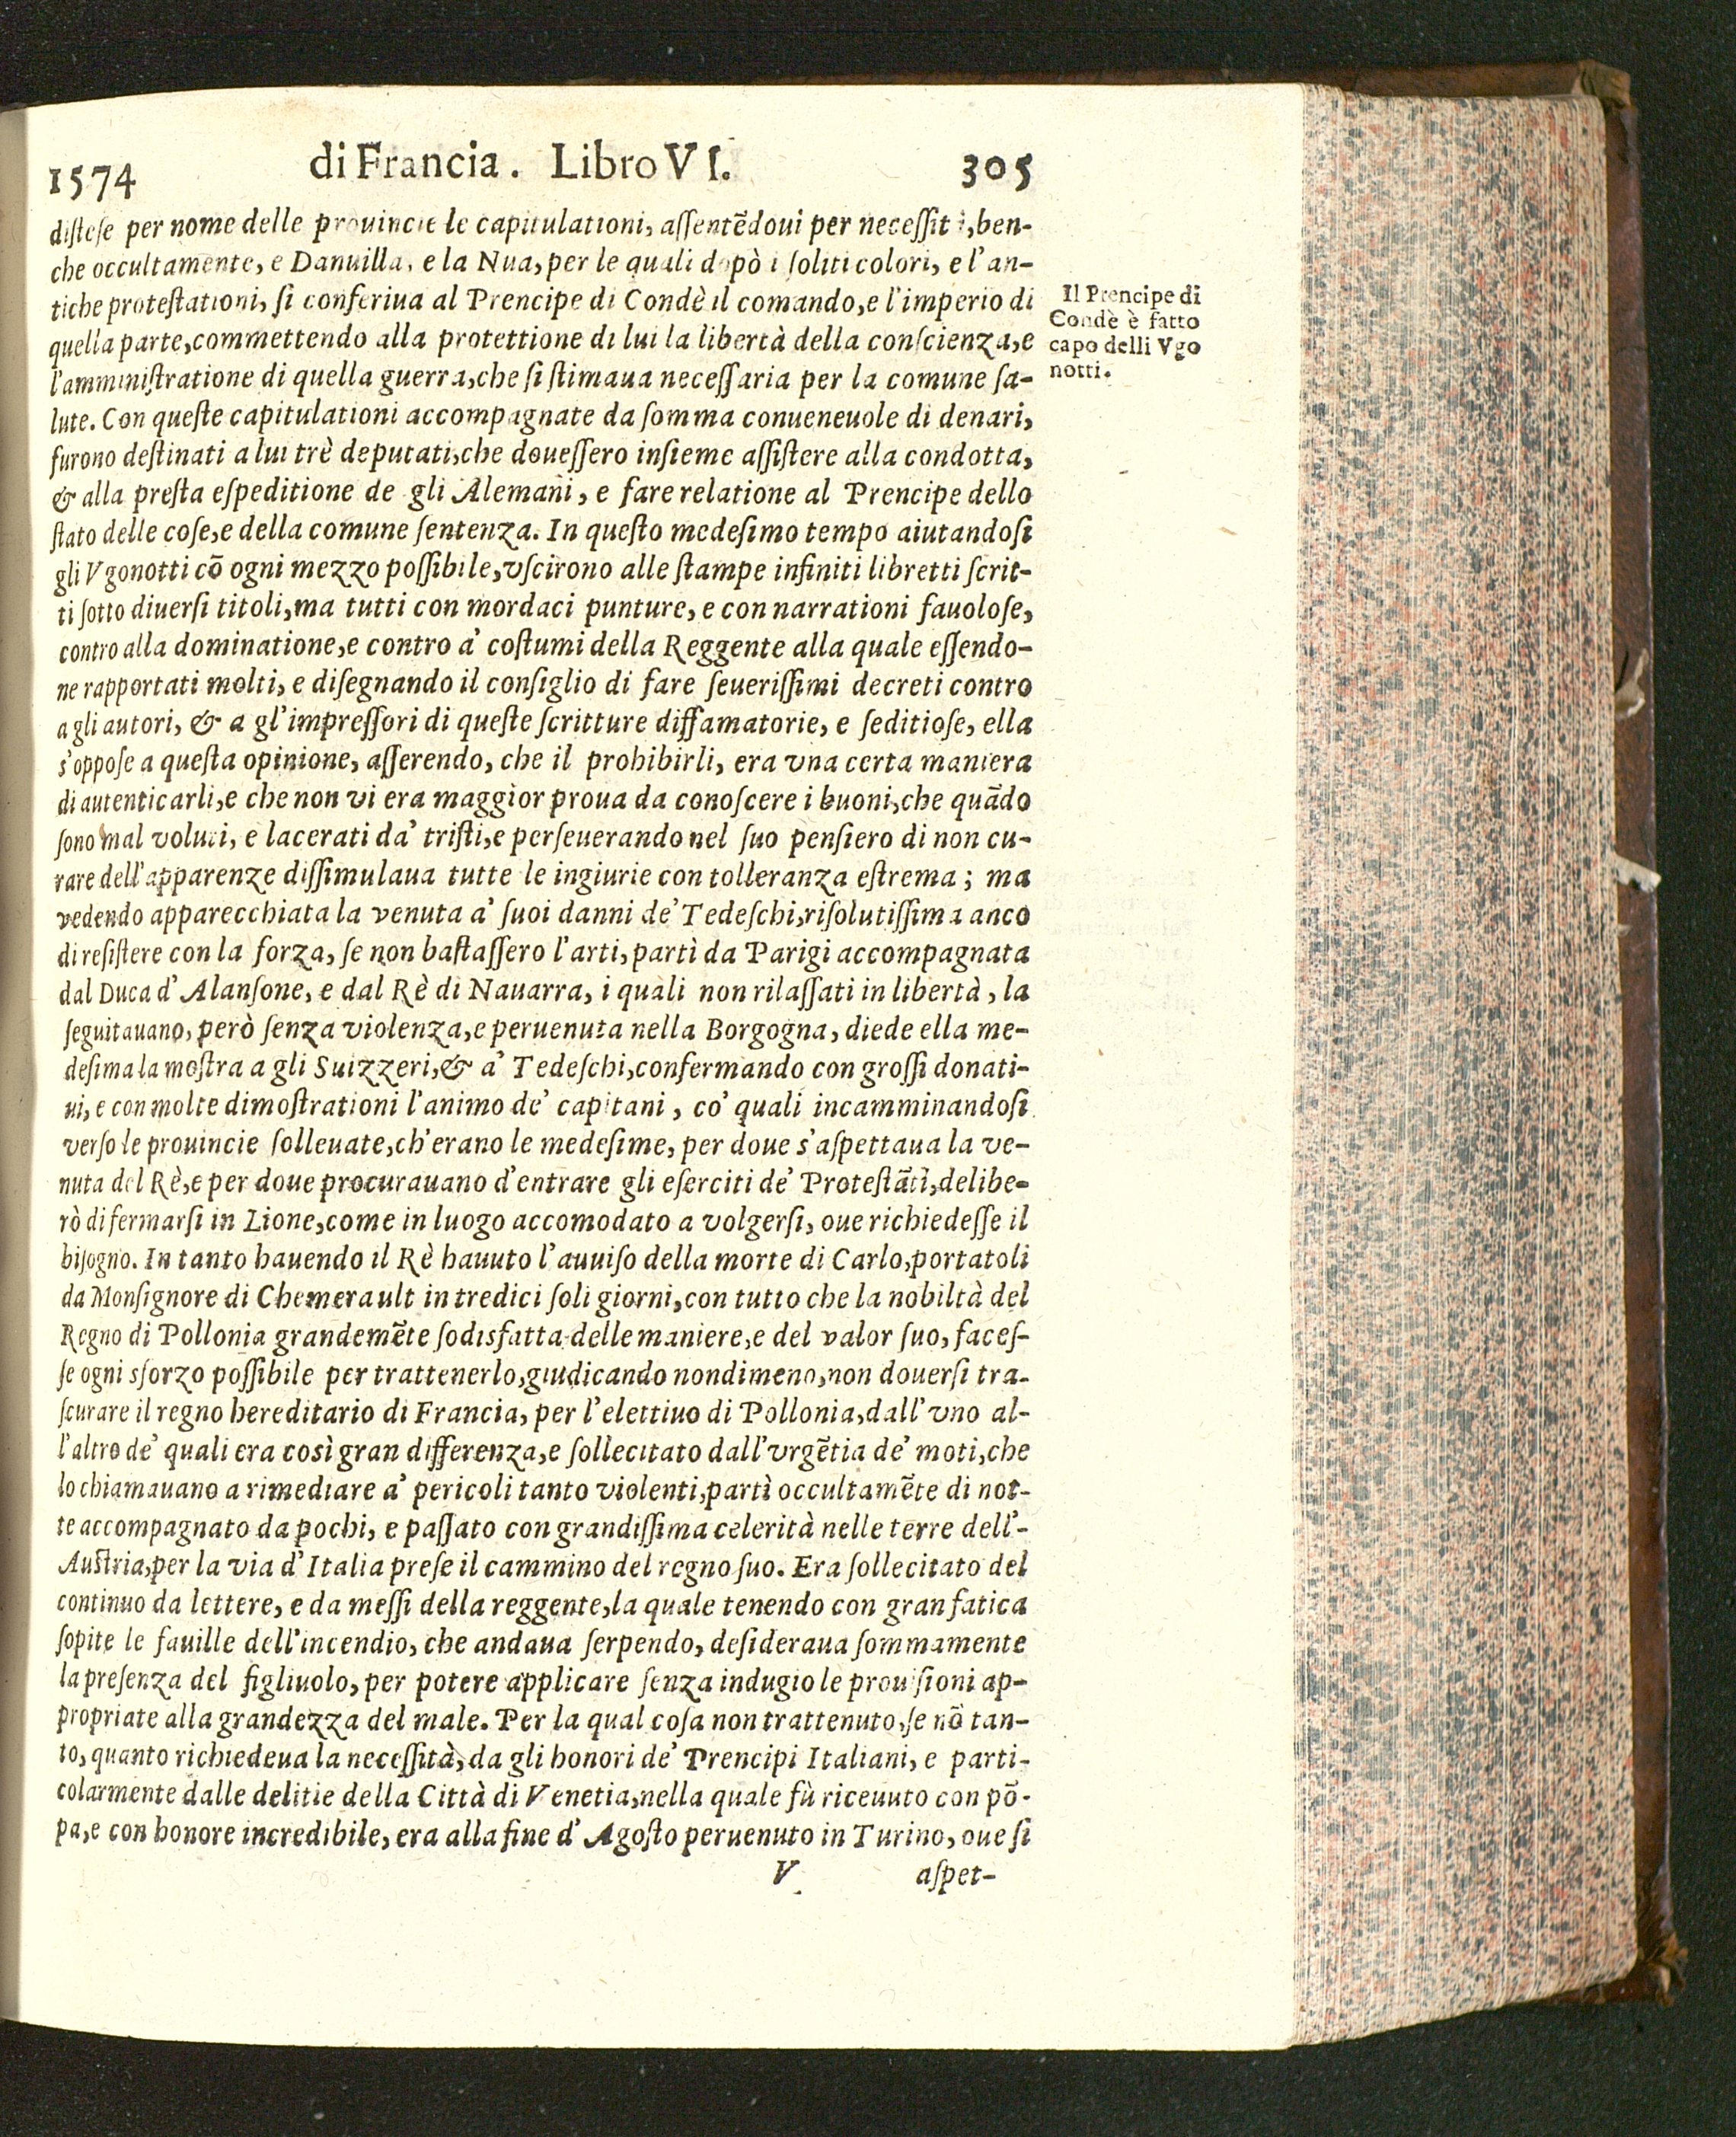 1574 di Francia. Libro VI. 305
disteſe per nome delle prouincie le capitulationi, aſſentẽdoui per neceſſità, ben-
che occultamente, e Danuilla, e la Nua, per le quali dopò i ſoliti colori, e l'an-
tiche proteſtationi, ſi conferiua al Prencipe di Condè il comando, e l'imperio di
quella parte, commettendo alla protettione di lui la libertà della conſcienza, e
l'amminiſtratione di quella guerra, che ſi ſtimaua neceſſaria per la comune ſa-
lute. Con queſte capitulationi accompagnate da ſomma conueneuole di denari,
furono deſtinati a lui trè deputati, che doueſſero inſieme aſſiſtere alla condotta,
& alla preſta eſpeditione de gli Alemani, e fare relatione al Prencipe dello
ſtato delle coſe, e della comune ſentenza. In queſto medeſimo tempo aiutandoſi
gli Vgonotti cõ ogni mezzo poſſibile, vſcirono alle ſtampe infiniti libretti ſcrit-
ti ſotto diuerſi titoli, ma tutti con mordaci punture, e con narrationi fauoloſe,
contro alla dominatione, e contro a' coſtumi della Reggente alla quale eſſendo-
ne rapportati molti, e diſegnando il conſiglio di fare ſeueriſſimi decreti contro
a gli autori, & a gl'impreſſori di queſte ſcritture diffamatorie, e ſeditioſe, ella
s'oppoſe a queſta opinione, aſſerendo, che il prohibirli, era vna certa maniera
di autenticarli, e che non vi era maggior proua da conoſcere i buoni, che quãdo
ſono mal voluti, e lacerati da' triſti, e perſeuerando nel ſuo penſiero di non cu-
rare dell'apparenze diſſimulaua tutte le ingiurie con tolleranza eſtrema; ma
vedendo apparecchiata la venuta a' ſuoi danni de' Tedeſchi, riſolutiſſima anco
di reſiſtere con la forza, ſe non baſtaſſero l'arti, partì da Parigi accompagnata
dal Duca d'Alanſone, e dal Rè di Nauarra, i quali non rilaſſati in libertà, la
ſeguitauano, però ſenza violenza, e peruenuta nella Borgogna, diede ella me-
deſima la moſtra a gli Suizzeri, & a' Tedeſchi, confermando con groſſi donati-
ui, e con molte dimoſtrationi l'animo de' capitani, co' quali incamminandoſi
verſo le prouincie ſolleuate, ch'erano le medeſime, per doue s'aſpettaua la ve-
nuta del Rè, e per doue procurauano d'entrare gli eſerciti de' Proteſtãti, delibe-
rò di fermarſi in Lione, come in luogo accomodato a volgerſi, oue richiedeſſe il
biſogno. In tanto hauendo il Rè hauuto l'auuiſo della morte di Carlo, portatoli
da Monſignore di Chemerault in tredici ſoli giorni, con tutto che la nobiltà del
Regno di Pollonia grandemẽte ſodisfatta delle maniere, e del valor ſuo, faceſ-
ſe ogni sforzo poſſibile per trattenerlo, giudicando nondimeno, non douerſi tra-
ſcurare il regno hereditario di Francia, per l'elettiuo di Pollonia, dall'vno al-
l'altro de' quali era così gran differenza, e ſollecitato dall'vrgẽtia de' moti, che
lo chiamauano a rimediare a' pericoli tanto violenti, partì occultamẽte di not-
te accompagnato da pochi, e paſſato con grandiſſima celerità nelle terre dell'-
Auſtria, per la via d'Italia preſe il cammino del regno ſuo. Era ſollecitato del
continuo da lettere, e da meſſi della reggente, la quale tenendo con gran fatica
ſopite le fauille dell'incendio, che andaua ſerpendo, deſideraua ſommamente
la preſenza del figliuolo, per potere applicare ſenza indugio le prouiſioni ap-
propriate alla grandezza del male. Per la qual coſa non trattenuto, ſe nõ tan-
to, quanto richiedeua la neceſſità, da gli honori de' Prencipi Italiani, e parti-
colarmente dalle delitie della Città di Venetia, nella quale fù riceuuto con põ-
pa, e con honore incredibile, era alla fine d'Agoſto peruenuto in Turino, oue ſi
V aſpet-
Il Prencipe di
Condè è fatto
capo delli Vgo
notti.